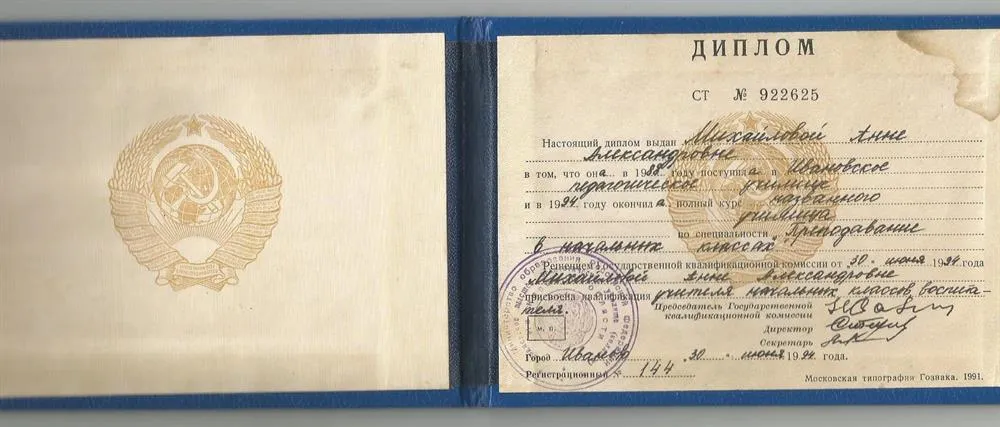 ДИПЛОМ
СТ № 922625
Настоящий диплом выдан Михайловой Анне
Александровне
в том, что она в 19 году поступила в Ивановское
педагогическое училище
и в 1994 году окончила полный курс названного
училища
по специальности „Преподавание
в начальных классах"
Решением Государственной квалификационной комиссии от 30 июня 1994 года
Михайловой Анне Александровне
присвоена квалификация учителя начальных классов, воспита-
теля.
Председатель Государственной
квалификационной комиссии
Директор
Секретарь
М. П.
Город Иваново 30 июня 1994 года.
Регистрационный № 144
Московская типография Гознака. 1991.